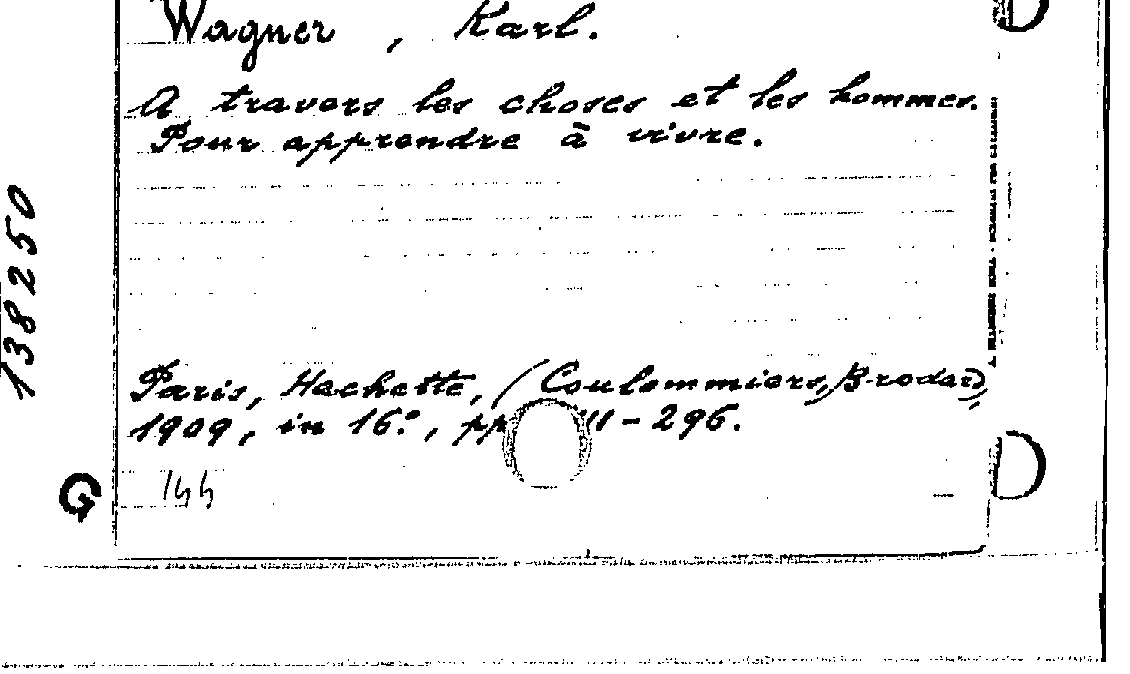 Wagner, Karl.
A travers les choses et les hommes.
Pour apprendre à vivre.
138250
Paris, Hachette, (Coulommiers, Brodard),
1909, in 16.°, pp - 296.
144
G